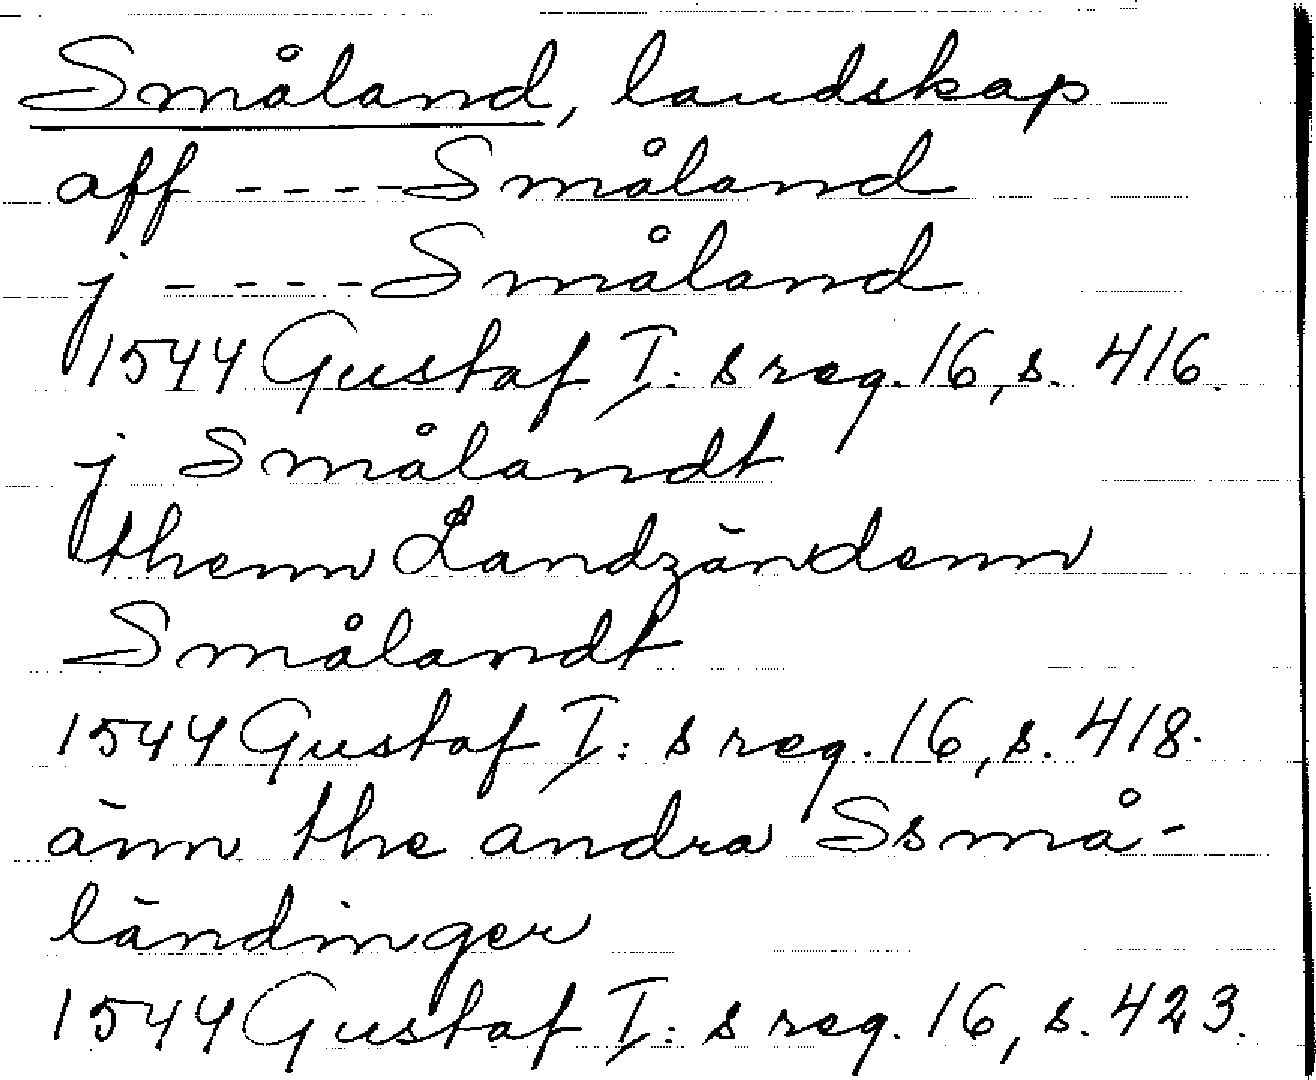 Småland, landskap
aff ----Småland
j ----Småland
1544 Gustaf I:s reg. 16, s. 416.
j Smålandt
thenn Landzändenn
Smålandt
1544 Gustaf I:s reg. 16, s. 418.
änn the andra Ssmå-
ländinger
1544 Gustaf I:s reg. 16, s. 423.